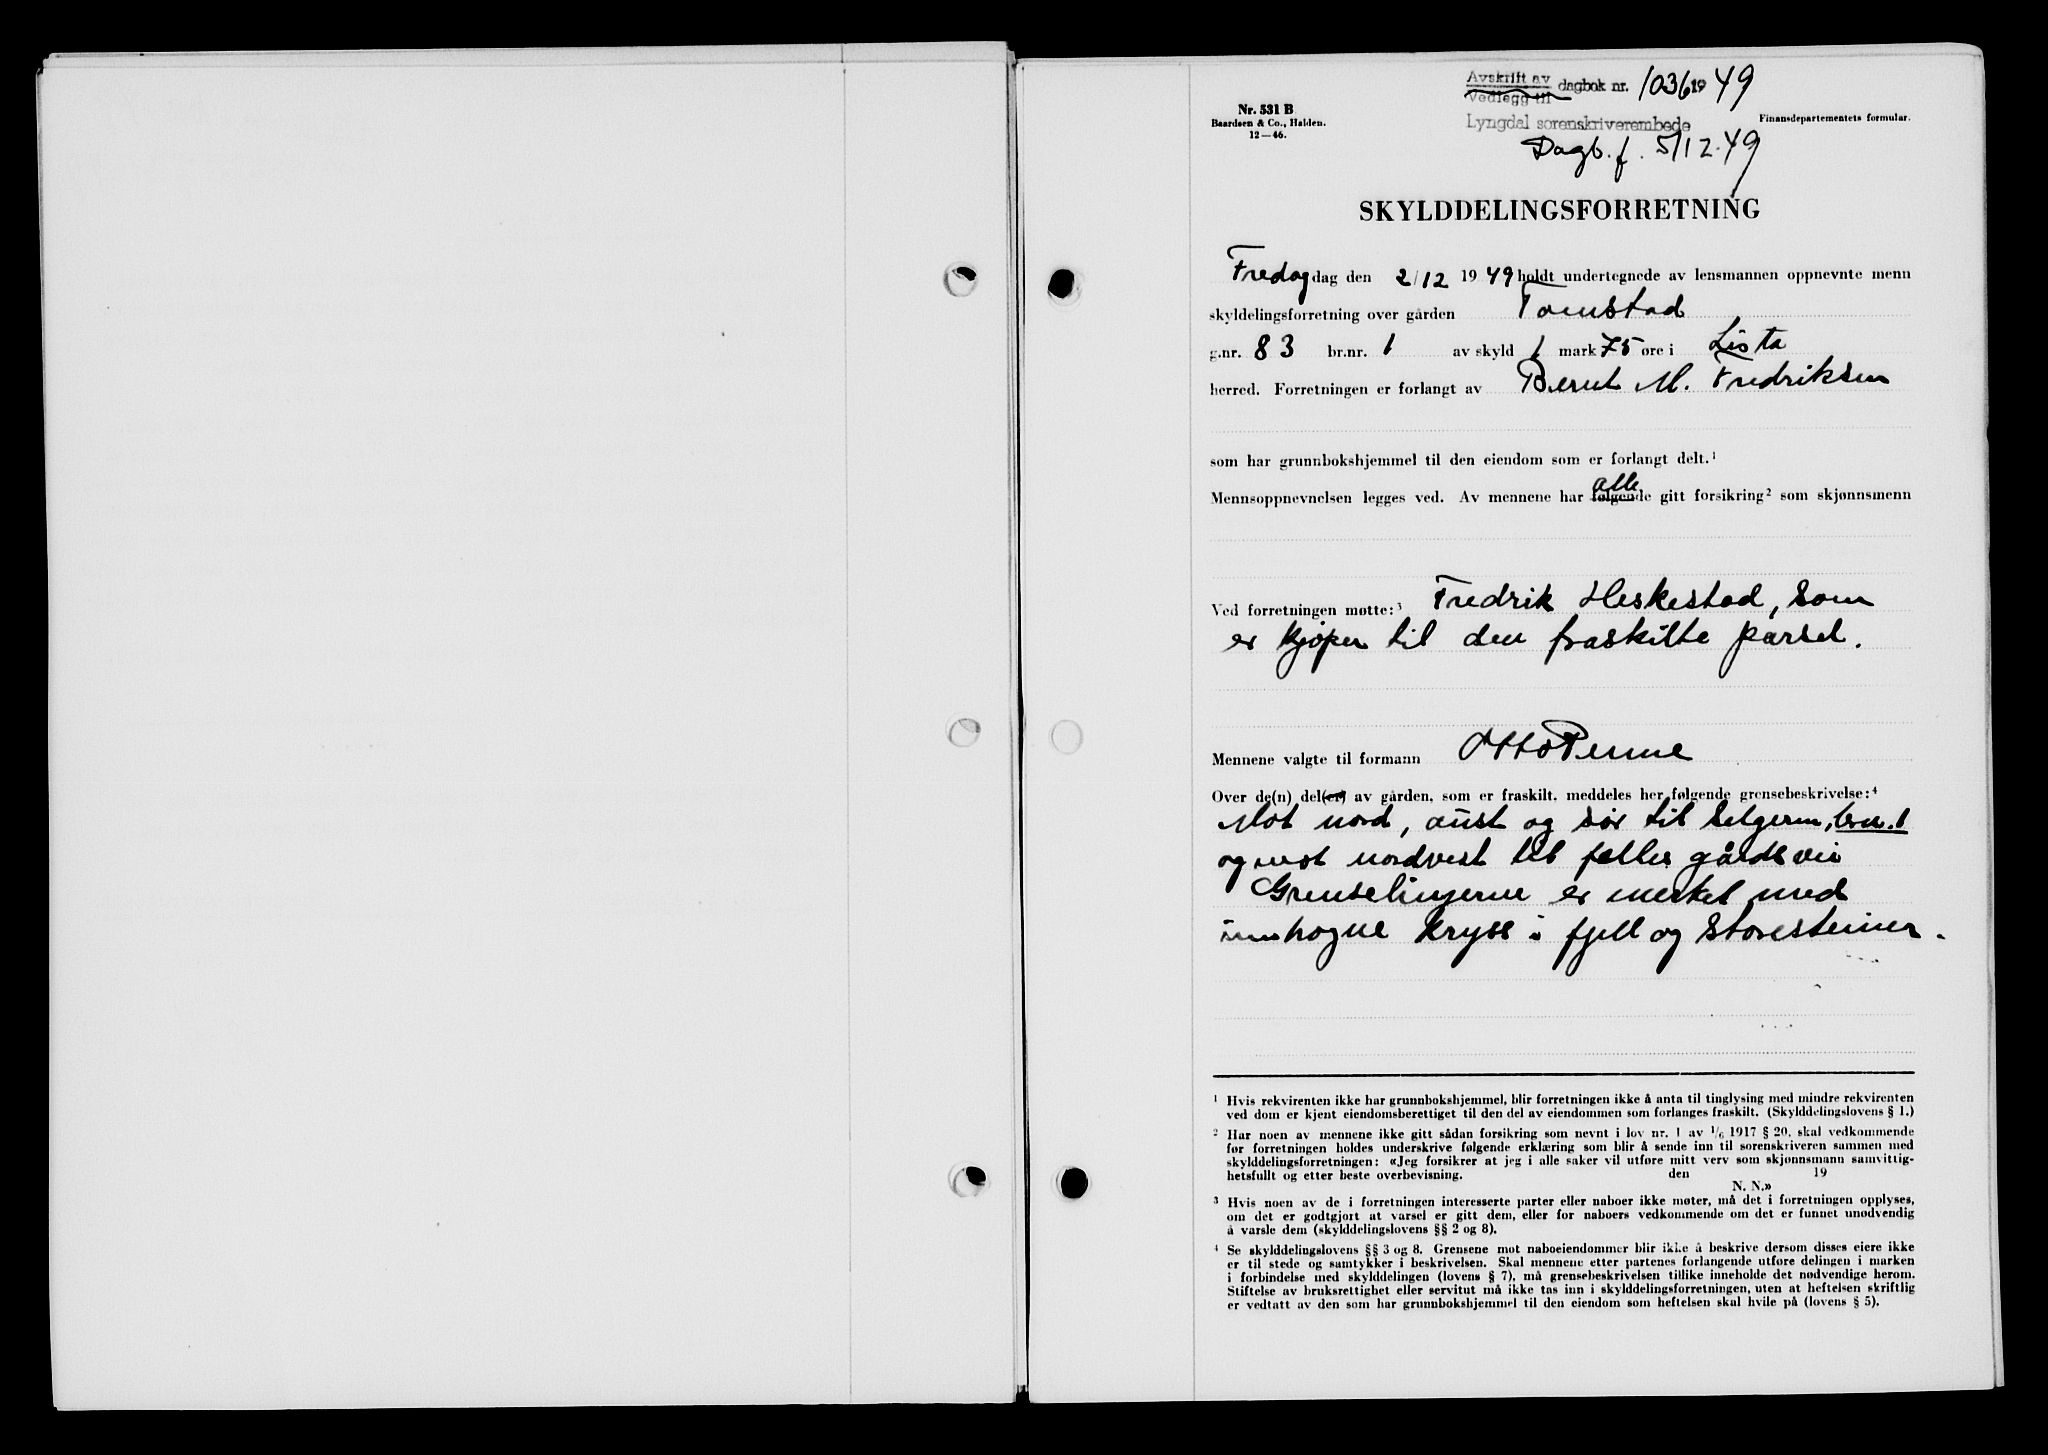 Avskrift av
Vedlegg til dagbok nr. 1036 19 49
Lyngdal sorenskriverembede
Dagb. f. 5/12.49
Nr. 531 B
Baardsen & Co., Halden.
12—46.
Finansdepartementets formular.
SKYLDDELINGSFORRETNING
Fredag dag den 2/12 1949 holdt undertegnede av lensmannen oppnevnte menn
skyldelingsforretning over gården Tomstad
g.nr. 83 br.nr. 1 av skyld 1 mark 75 øre i Lista
herred. Forretningen er forlangt av Bernt M. Fredriksen
som har grunnbokshjemmel til den eiendom som er forlangt delt.¹
alle
Mennsoppnevnelsen legges ved. Av mennene har følgende gitt forsikring² som skjønnsmenn
Ved forretningen møtte:³ Fredrik Heskestad, som
er kjøper til den fraskilte parsel.
Mennene valgte til formann Otto Penne
Over de(n) del(er) av gården, som er fraskilt, meddeles her følgende grensebeskrivelse:⁴
Mot nord, aust og sør til selgeren, brn. 1
og mot nordvest til felles gårdsvei
Grenselinjerne er merket med
innhogne kryss i fjell og storesteiner.
¹ Hvis rekvirenten ikke har grunnbokshjemmel, blir forretningen ikke å anta til tinglysing med mindre rekvirenten
ved dom er kjent eiendomsberettiget til den del av eiendommen som forlanges fraskilt. (Skylddelingslovens § 1.)
² Har noen av mennene ikke gitt sådan forsikring som nevnt i lov nr. 1 av 1/6 1917 § 20, skal vedkommende
før forretningen holdes underskrive følgende erklæring som blir å sende inn til sorenskriveren sammen med
skylddelingsforretningen: «Jeg forsikrer at jeg i alle saker vil utføre mitt verv som skjønnsmann samvittig-
hetsfullt og etter beste overbevisning. den 19
N. N.»
³ Hvis noen av de i forretningen interesserte parter eller naboer ikke møter, må det i forretningen opplyses,
om det er godtgjort at varsel er gitt dem, eller for naboers vedkommende om det er funnet unødvendig
å varsle dem (skylddelingslovens §§ 2 og 8).
⁴ Se skylddelingslovens §§ 3 og 8. Grensene mot naboeiendommer blir ikke å beskrive dersom disses eiere ikke
er til stede og samtykker i beskrivelsen. Skal mennene etter partenes forlangende utføre delingen i marken
i forbindelse med skylddelingen (lovens § 7), må grensebeskrivelsen tillike inneholde det nødvendige herom.
Stiftelse av bruksrettighet eller servitut må ikke tas inn i skylddelingsforretningen, uten at heftelsen skriftlig
er vedtatt av den som har grunnbokshjemmel til den eiendom som heftelsen skal hvile på (lovens § 5).